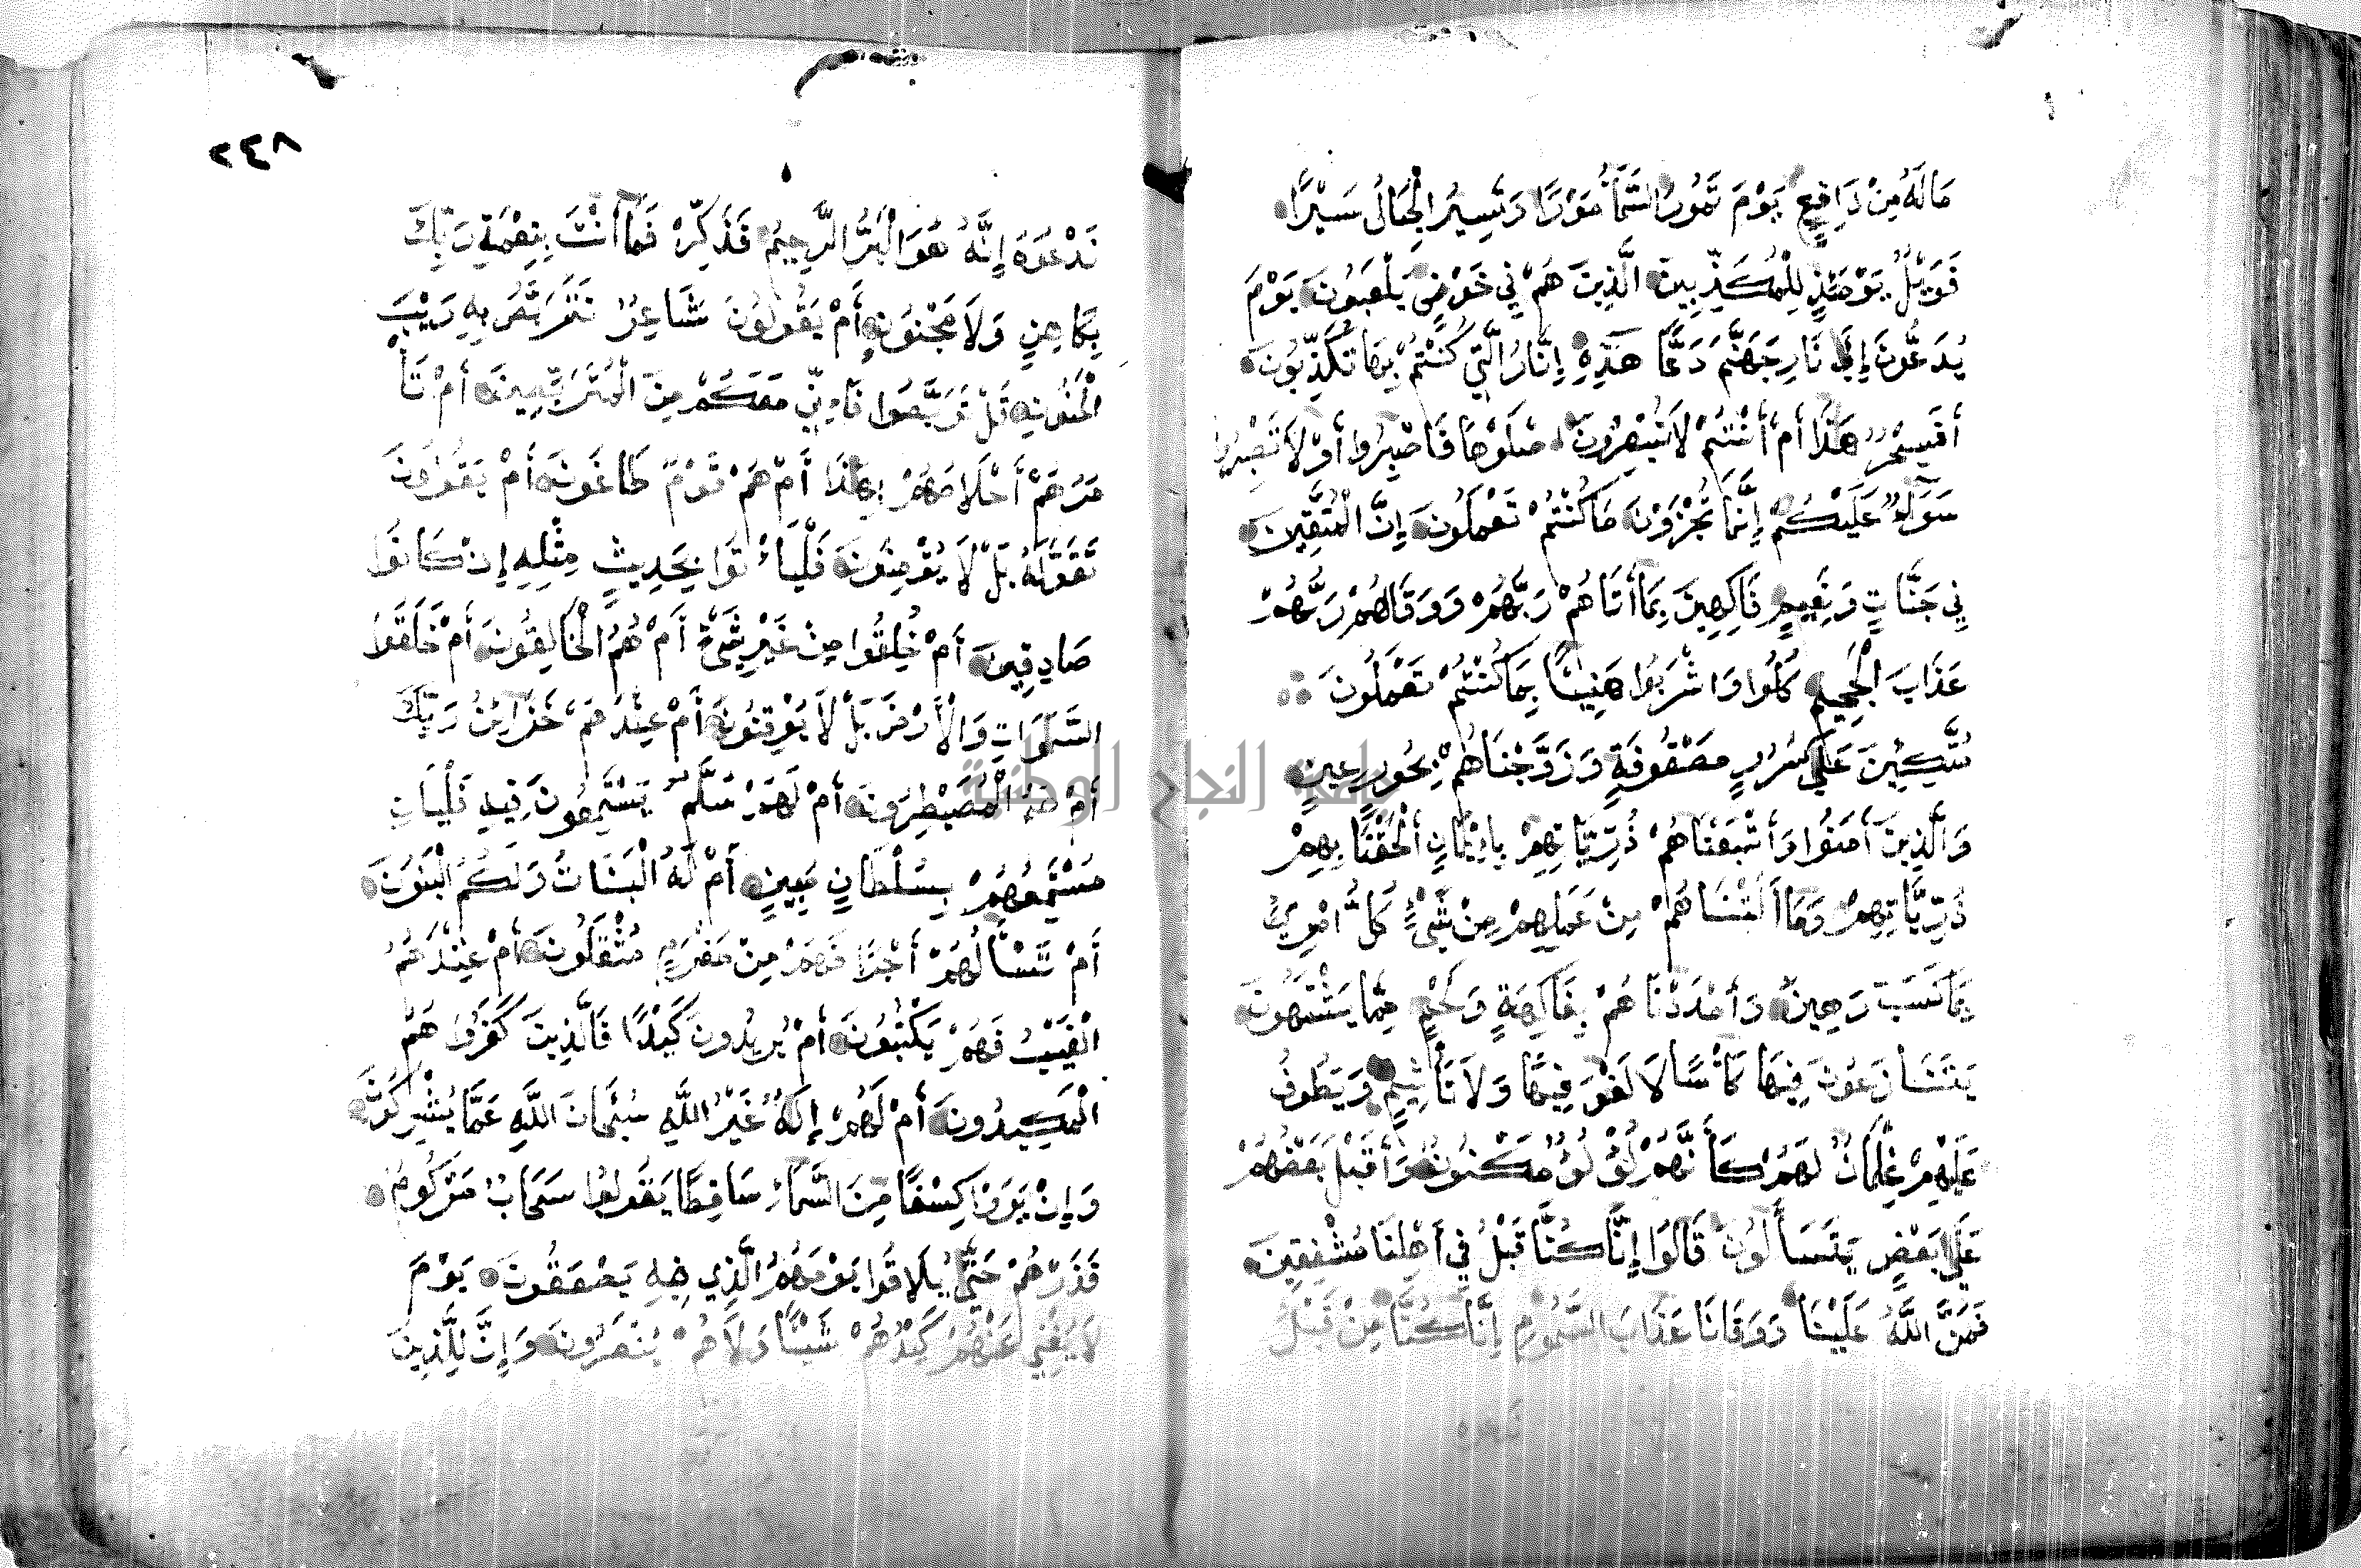 مَا لَهُ مِنْ دَافِعٍ يَوْمَ تَمُورُ السَّمَاءُ مَوْرًا وَتَسِيرُ الْجِبَالُ سَيْرًا
فَوَيْلٌ يَوْمَئِذٍ لِلْمُكَذِّبِينَ الَّذِينَ هُمْ فِي خَوْضٍ يَلْعَبُونَ يَوْمَ
يُدَعُّونَ إِلَى نَارِ جَهَنَّمَ دَعًّا هَذِهِ النَّارُ الَّتِي كُنْتُمْ بِهَا تُكَذِّبُونَ
أَفَسِحْرٌ هَذَا أَمْ أَنْتُمْ لَا تُبْصِرُونَ اصْلَوْهَا فَاصْبِرُوا أَوْ لَا تَصْبِرُوا
سَوَاءٌ عَلَيْكُمْ إِنَّمَا تُجْزَوْنَ مَا كُنْتُمْ تَعْمَلُونَ إِنَّ الْمُتَّقِينَ
فِي جَنَّاتٍ وَنَعِيمٍ فَاكِهِينَ بِمَا أَتَاهُمْ رَبُّهُمْ وَوَقَاهُمْ رَبُّهُمْ
عَذَابَ الْجَحِيمِ كُلُوا وَاشْرَبُوا هَنِيئًا بِمَا كُنْتُمْ تَعْمَلُونَ
مُتَّكِئِينَ عَلَى سُرُرٍ مَصْفُوفَةٍ وَزَوَّجْنَاهُمْ بِحُورٍ عِينٍ
وَالَّذِينَ أَمَنُوا وَأَتْبَعْنَاهُمْ ذُرِّيَّاتِهِمْ بِإِيْمَانٍ أَلْحَقْنَا بِهِمْ
ذُرِّيَّاتِهِمْ وَمَا أَلَتْنَاهُمْ مِنْ عَمَلِهِمْ مِنْ شَيْءٍ كُلُّ امْرِئٍ
بِمَا كَسَبَ رَهِينٌ وَأَمْدَدْنَاهُمْ بِفَاكِهَةٍ وَلَحْمٍ مِمَّا يَشْتَهُونَ
يَتَنَازَعُونَ فِيهَا كَأْسًا لَا لَغْوَ فِيهَا وَلَا تَأْثِيمَ وَيَطُوفُ
عَلَيْهِمْ غِلْمَانٌ لَهُمْ كَأَنَّهُمْ لُؤْلُؤٌ مَكْنُونٌ وَأَقْبَلَ بَعْضُهُمْ
عَلَى بَعْضٍ يَتَسَاءَلُونَ قَالُوا إِنَّا كُنَّا قَبْلُ فِي أَهْلِنَا مُشْفِقِينَ
فَمَنَّ اللَّهُ عَلَيْنَا وَوَقَانَا عَذَابَ السَّمُومِ إِنَّا كُنَّا مِنْ قَبْلُ
٢٤٨
نَدْعُوهُ إِنَّهُ هُوَ الْبَرُّ الرَّحِيمُ فَذَكِّرْ فَمَا أَنْتَ بِنِعْمَةِ رَبِّكَ
بِكَاهِنٍ وَلَا مَجْنُونٍ أَمْ يَقُولُونَ شَاعِرٌ نَتَرَبَّصُ بِهِ رَيْبَ
الْمَنُونِ قُلْ تَرَبَّصُوا فَإِنِّي مَعَكُمْ مِنَ الْمُتَرَبِّصِينَ أَمْ تَأْ
مُرُهُمْ أَحْلَامُهُمْ بِهَذَا أَمْ هُمْ قَوْمٌ طَاغُونَ أَمْ يَقُولُونَ
تَقَوَّلَهُ بَلْ لَا يُؤْمِنُونَ فَلْيَأْتُوا بِحَدِيثٍ مِثْلِهِ إِنْ كَانُوا
صَادِقِينَ أَمْ خُلِقُوا مِنْ غَيْرِ شَيْءٍ أَمْ هُمُ الْخَالِقُونَ أَمْ خَلَقُوا
السَّمَوَاتِ وَالْأَرْضَ بَلْ لَا يُوقِنُونَ أَمْ عِنْدَهُمْ خَزَائِنُ رَبِّكَ
أَمْ هُمُ الْمُصَيْطِرُونَ أَمْ لَهُمْ سُلَّمٌ يَسْتَمِعُونَ فِيهِ فَلْيَاتِ
مُسْتَمِعُهُمْ بِسُلْطَانٍ مُبِينٍ أَمْ لَهُ الْبَنَاتُ وَلَكُمُ الْبَنُونَ
أَمْ تَسْأَلُهُمْ أَجْرًا فَهُمْ مِنْ مَغْرَمٍ مُثْقَلُونَ أَمْ عِنْدَهُمُ
الْغَيْبُ فَهُمْ يَكْتُبُونَ أَمْ يُرِيدُونَ كَيْدًا فَالَّذِينَ كَفَرُوا هُمُ
الْمَكِيدُونَ أَمْ لَهُمْ إِلَهٌ غَيْرُ اللَّهِ سُبْحَانَ اللَّهِ عَمَّا يُشْرِكُونَ
وَإِنْ يَرَوْا كِسْفًا مِنَ السَّمَاءِ سَاقِطًا يَقُولُوا سَحَابٌ مَرْكُومٌ
فَذَرْهُمْ حَتَّى يُلَاقُوا يَوْمَهُمُ الَّذِي فِيهِ يَصْعَقُونَ يَوْمَ
لَا يُغْنِي عَنْهُمْ كَيْدُهُمْ شَيْئًا وَلَا هُمْ يُنْصَرُونَ وَإِنَّ لِلَّذِينَ
جامعة النجاح الوطنية